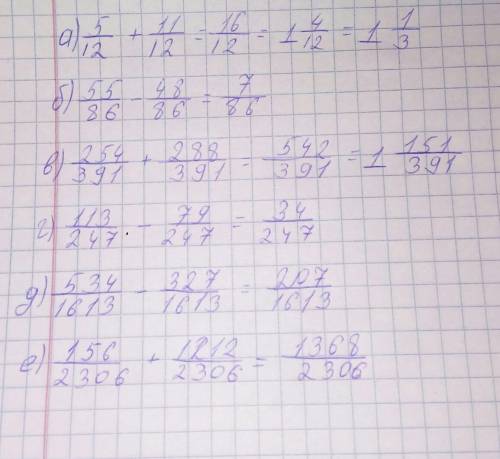 а) 5/12 + 11/12 = 16/12 = 1 4/12 = 1 1/3
б) 55/86 - 48/86 = 7/86
в) 254/391 + 288/391 = 542/391 = 1 151/391
г) 113/247 - 79/247 = 34/247
д) 534/1613 - 327/1613 = 207/1613
е) 156/2306 + 1212/2306 = 1368/2306